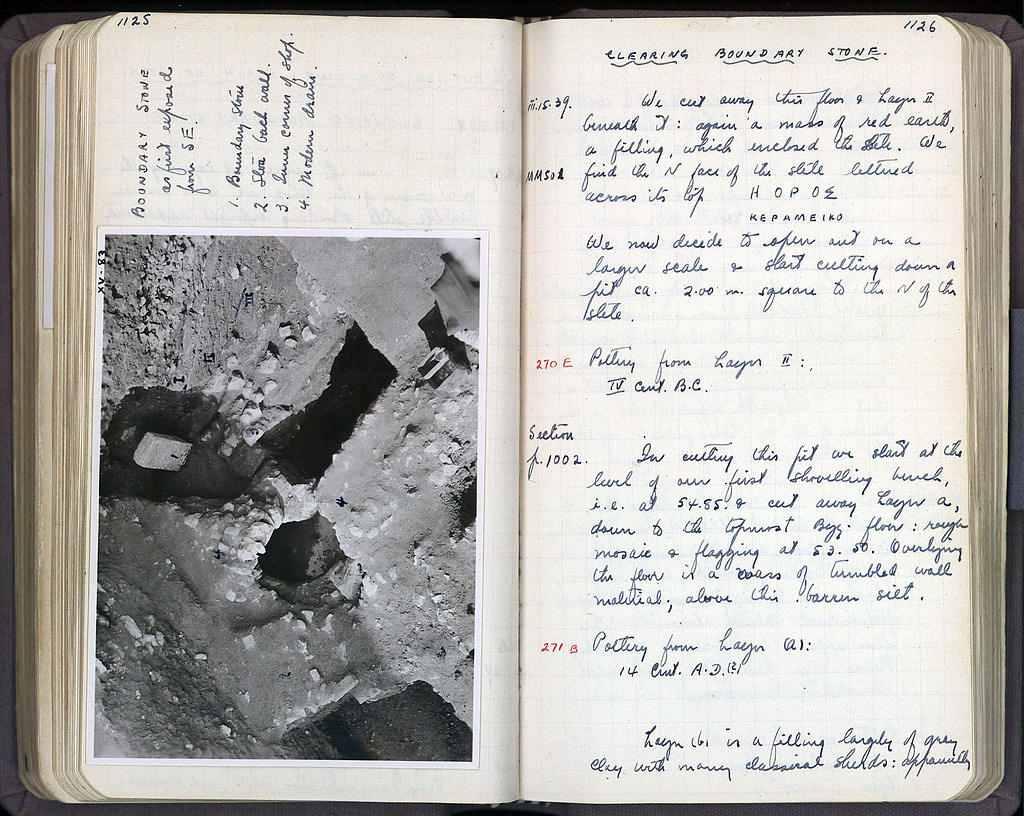 1125
BOUNDARY STONE
as first exposed
from SE
1. Boundary Stone
2. Stoa back wall.
3. Inner corner of shop.
4. Modern drain.
AX-83
III
II
I
1
3
4
4
1126
CLEARING BOUNDARY STONE.
iii.15.39. We cut away this floor & Layer II
beneath it: again a mass of red earth,
a filling, which enclosed the stele. We
MM502 find the N face of the stele lettered
across its top ΗΟΡΟΣ
ΚΕΡΑΜΕΙΚΟ
We now decide to open out on a
larger scale & start cutting down a
pit ca. 2.00 m. square to the N of the
stele.
270 E Pottery from Layer II:
IV Cent. B.C.
Section
p. 1002. In cutting this pit we start at the
level of our first shovelling bench,
i.e. at 54.85. & cut away Layer a,
down to the topmost Byz. floor: rough
mosaic & flagging at 53.50. Overlying
the floor is a mass of tumbled wall
material; above this barren silt.
271 B Pottery from Layer (a):
14 Cent. A.D.(?)
Layer (b) is a filling largely of grey
clay with many classical sherds: apparently